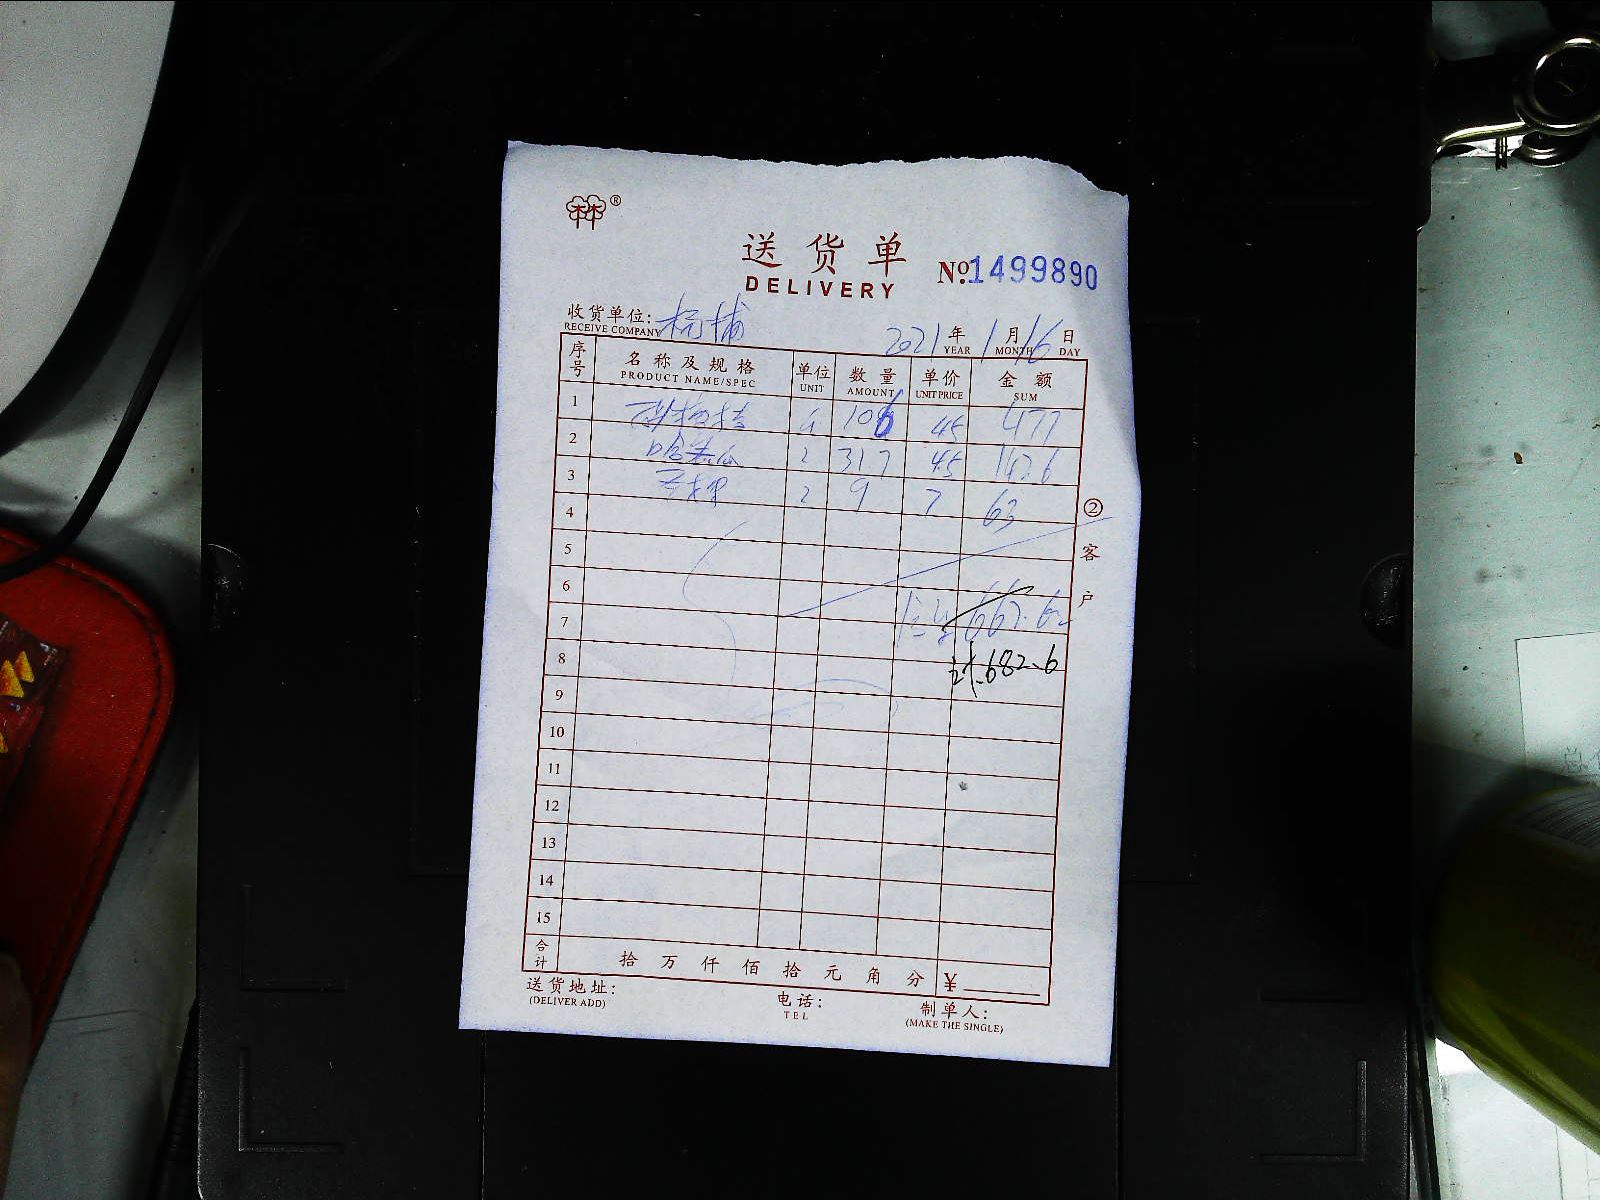 林®
送货单 №1499890
DELIVERY
收货单位: 杨浦 2021 年 1 月 16 日
RECEIVE COMPANY YEAR MONTH DAY
序号 名称及规格 单位 数量 单价 金额
PRODUCT NAME/SPEC UNIT AMOUNT UNIT PRICE SUM
1 4 106 45 477
2 哈密瓜 2 317 4.5 142.6
3 2 9 7 63
4
5
6
7 667.62
8 计.682.6
9
10
11
12
13
14
15
合计 拾 万 仟 佰 拾 元 角 分 ¥
送货地址: 电话: 制单人:
(DELIVER ADD) TEL (MAKE THE SINGLE)
② 客户